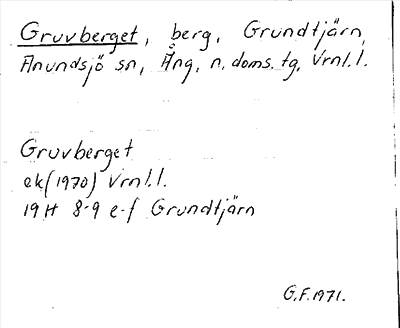 Gruvberget, berg, Grundtjärn,
Anundsjö sn, Ång, n. doms. tg, Vrnl.l.
Gruvberget
ek(1970) Vrnl.l.
19H 8-9 e-f Grundtjärn
G.F. 1971.